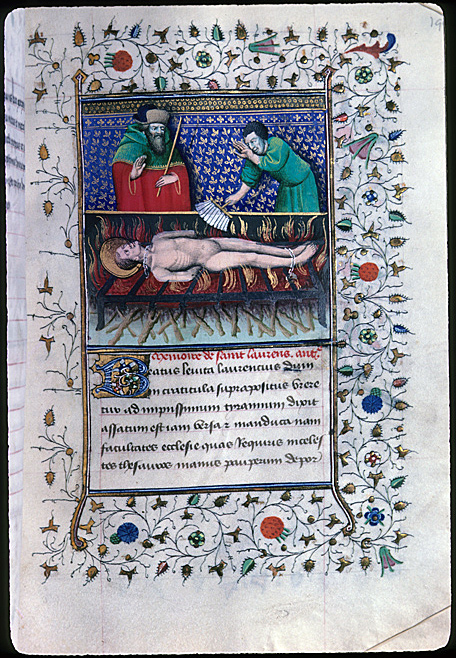 Memoire de saint laurens. ant.
Beatus levita laurencius Dum
in craticula suprapositus urere
tur ad impiissimum tirannum dixit
assatum est iam versa et manduca nam
facultates ecclesie quas requiris in celes
tes thesauros manus pauperum depor